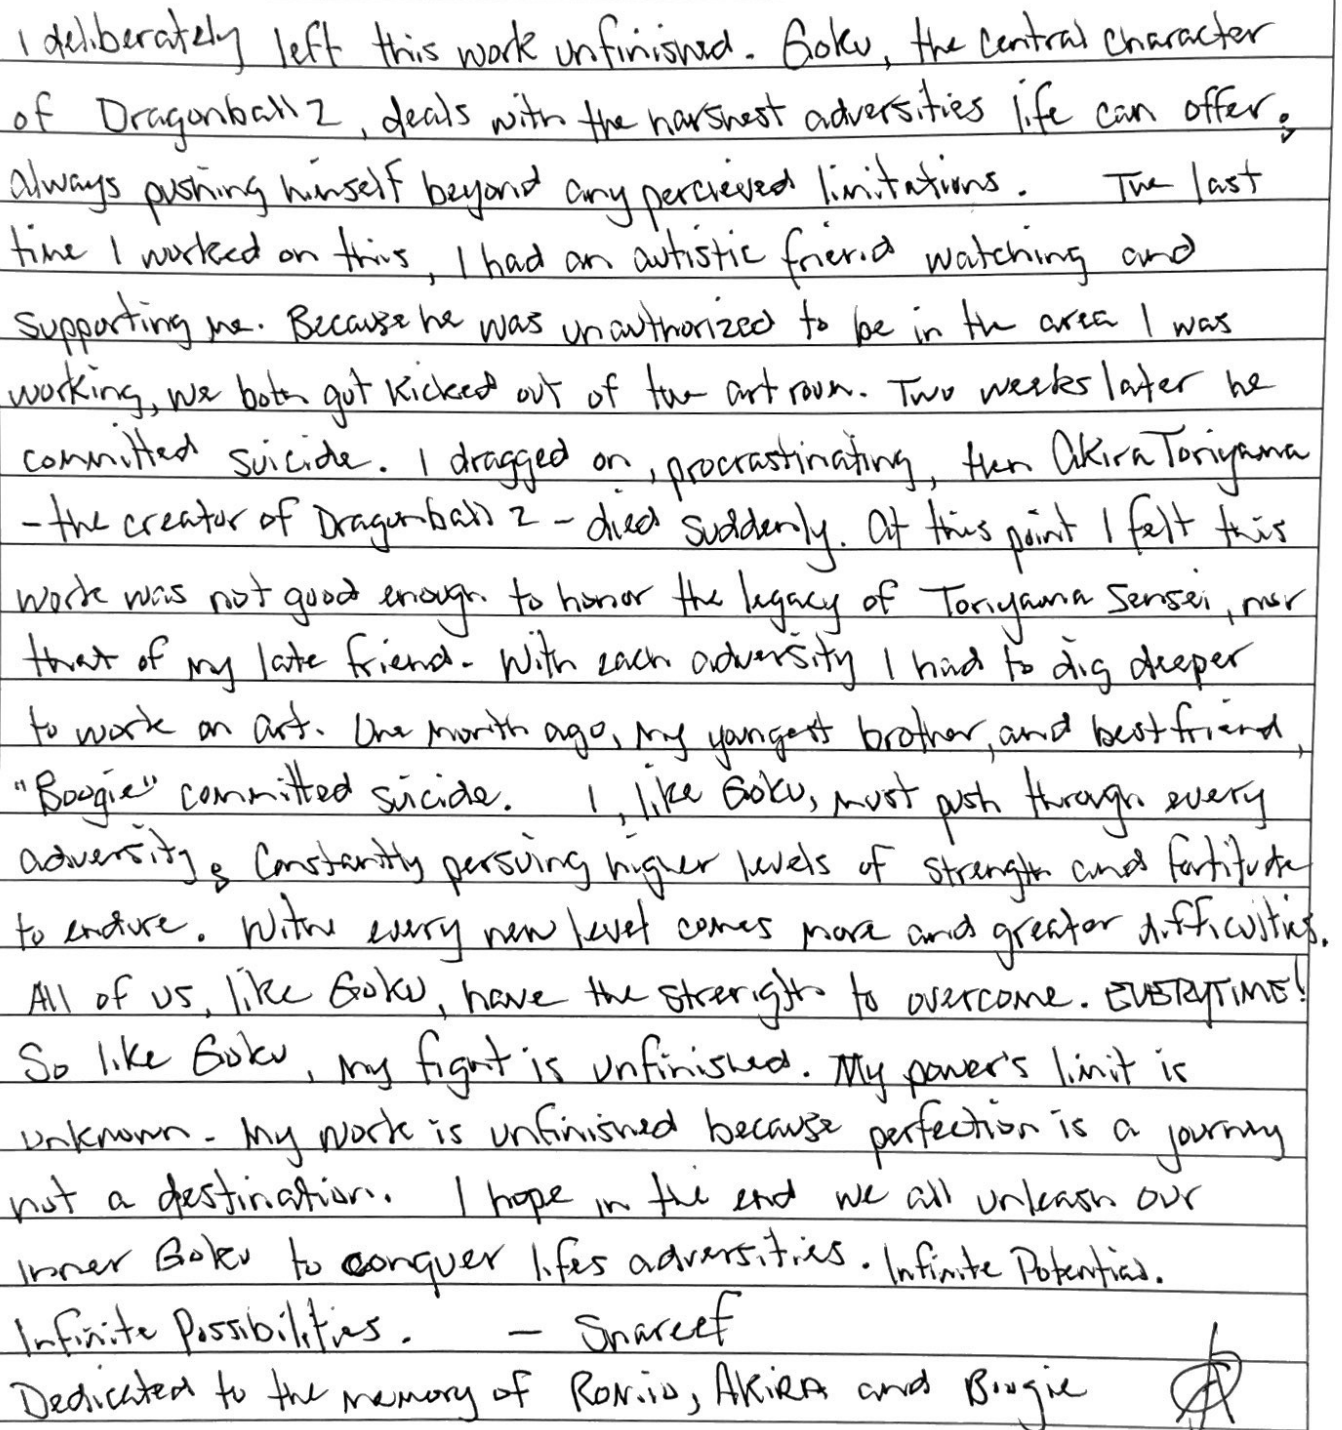 I deliberately left this work unfinished. Goku, the central character
of Dragonball Z, deals with the harshest adversities life can offer;
always pushing himself beyond any percieved limitations. The last
time I worked on this, I had an autistic friend watching and
supporting me. Because he was unauthorized to be in the area I was
working, we both got kicked out of the art room. Two weeks later he
committed suicide. I dragged on, procrastinating, then Akira Toriyama
- the creator of Dragonball Z - died suddenly. At this point I felt this
work was not good enough to honor the legacy of Toriyama Sensei, nor
that of my late friend. With each adversity I had to dig deeper
to work on art. One month ago, my yongest brother, and best friend,
"Boogie" committed suicide. I, like Goku, must push through every
adversity; Constantly persuing higher levels of strength and fortitude
to endure. With every new level comes more and greater difficulties.
All of us, like Goku, have the strength to overcome. EVERYTIME!
So like Goku, my fight is unfinished. My power's limit is
unknown. My work is unfinished because perfection is a journey
not a destination. I hope in the end we all unleash our
inner Goku to conquer lifes adversities. Infinite Potential.
Infinite Possibilities. - Shareef
Dedicated to the memory of AKIRA and Boogie